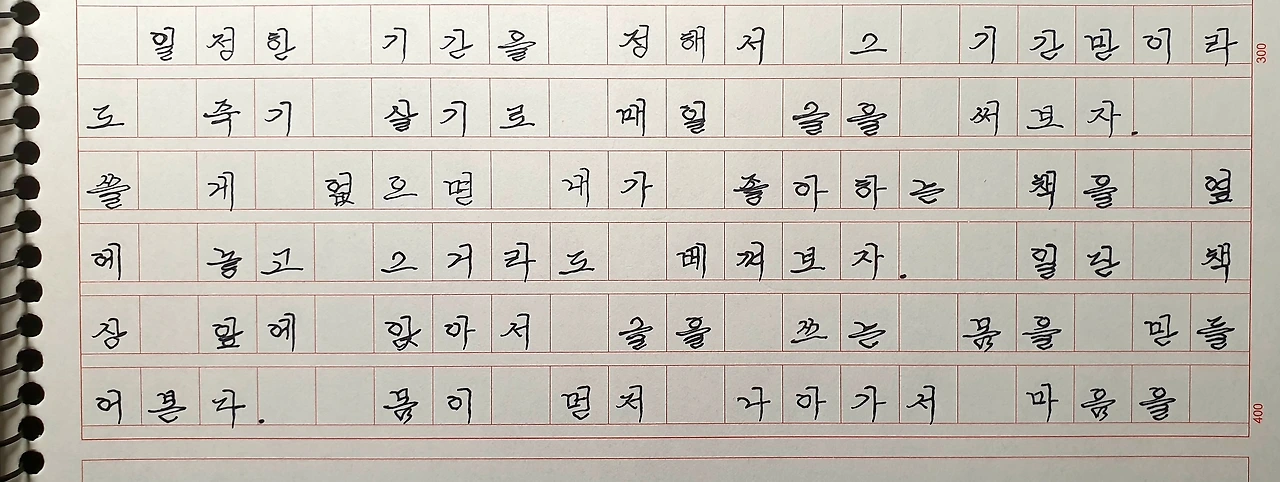 일정한 기간을 정해서 그 기간만이라 300
도 죽기 살기로 매일 글을 써보자.
쓸 게 없으면 내가 좋아하는 책을 옆
에 놓고 그거라도 베껴보자. 일단 책
상 앞에 앉아서 글을 쓰는 몸을 만들
어본다. 몸이 먼저 나아가서 마음을 400